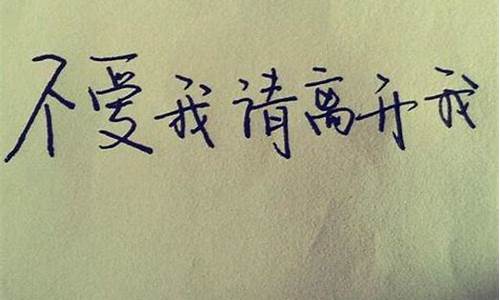 不爱我请离开我